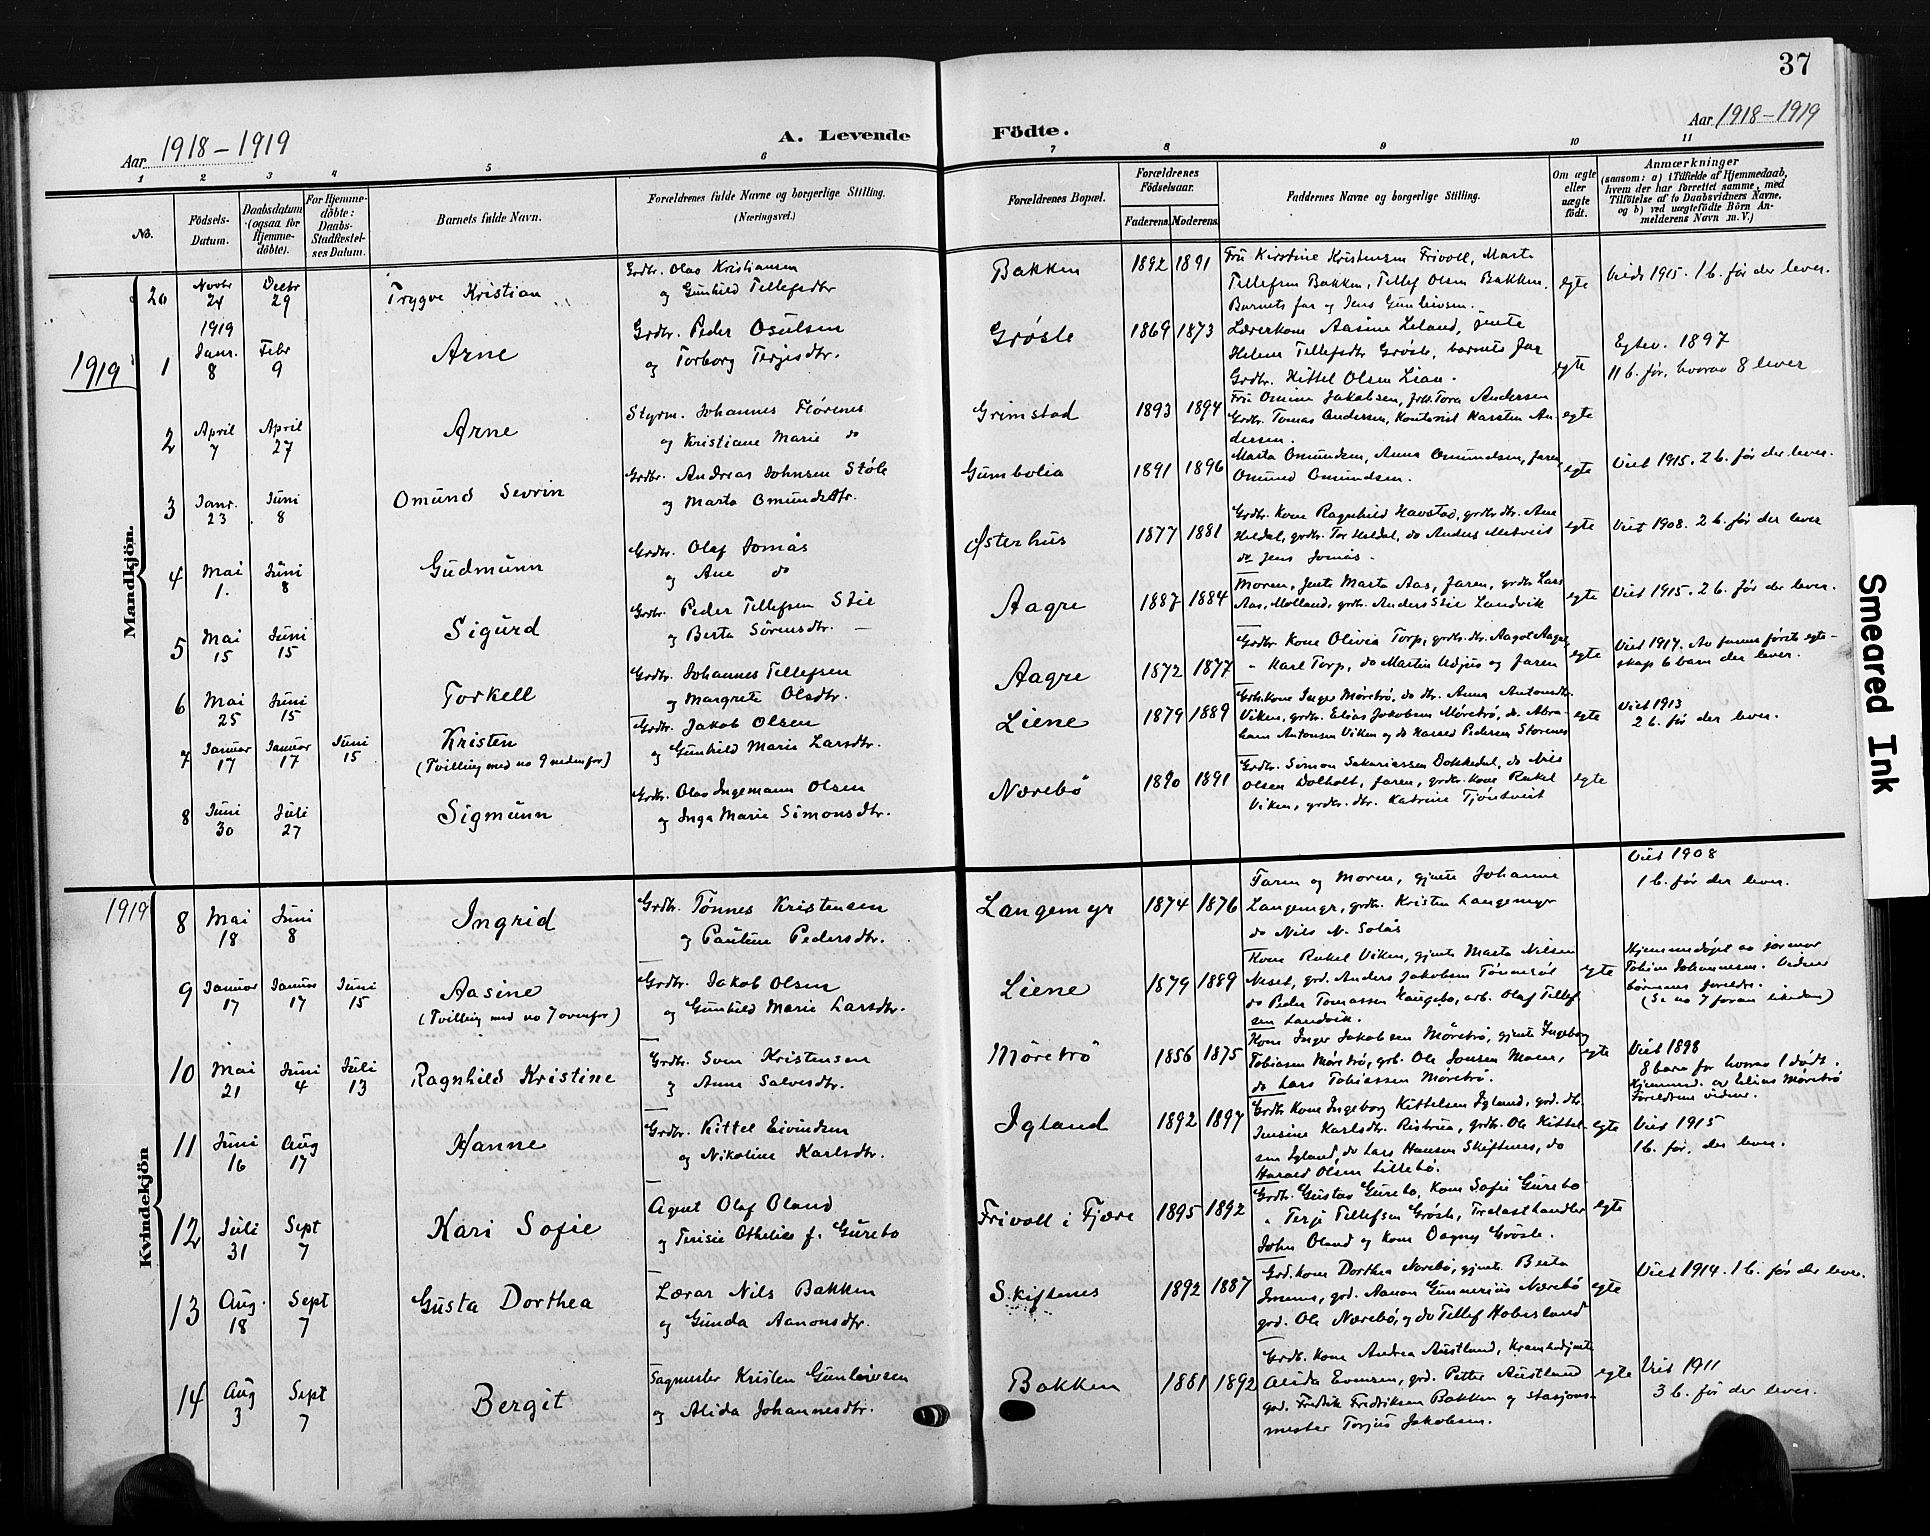 37
Aar 1918-1919
A. Levende Födte.
Aar 1918-1919
1 2 3 4 5 6 7 8 9 10 11
No.
Födsels-Datum.
Daabsdatum (ogsaa for Hjemme-döbte).
For Hjemme-döbte: Daabs-Stadfæstel-ses Datum.
Barnets fulde Navn.
Forældrenes fulde Navne og borgerlige Stilling.
(Næringsvei.)
Forældrenes Bopæl.
Forældrenes Födselsaar.
Faderens. Moderens.
Faddernes Navne og borgerlige Stilling.
Om ægte eller uægte födt.
Anmærkninger
(saasom: a) i Tilfælde af Hjemmedaab,
hvem der har forrettet samme, med
Tilföielse af to Daabsvidners Navne,
og b) ved uægtefödte Börn An-
melderens Navn m. V.)
Mandkjön.
20 Novbr 24 Decbr 29 Trygve Kristian
Grdbr. Olav Kristiansen
og Gunhild Tellefsdtr
Bakken 1892 1891
Fru Kirstine Kristensen Frivoll, Marta
Tellefsen Bakken, Tellef Olsen Bakken,
Barnets far og Jens Gunleivsen.
egte
Viede 1915. 1 b. før der lever.
1919
1919
1 Janr. 8 Febr 9 Arne
Grdbr. Peder Osulsen
og Torborg Terjesdtr.
Grøsle 1869 1873
Lærerkone Aasine Leland, jente
Helene Tellefsdtr Grøsle, barnets far
Grdbr. Kittel Olsen Lian.
egte
Egtev. 1897
11 b. før, hvorav 8 lever
2 April 7 April 27 Arne
Styrm. Johannes Flørenes
og Kristiane Marie do
Grimstad 1893 1894
Fru Omine Jakobsen, frk. Tora Andersen
Grdbr. Tomas Andersen, Kontorist Karsten An-
dersen.
egte
3 Janr. 23 Juni 8 Omund Sevrin
Grdbr. Andreas Johnsen Støle
og Marta Omundsdtr.
Gumbolia 1891 1896
Marta Omundsen, Anna Omundsen, faren,
Omund Omundsen.
egte
Viet 1915. 2 b. før der lever.
4 Mai 1. Juni 8 Gudmunn
Grdbr. Olaf Jomås
og Ane do
Østerhus 1877 1881
Grdbr. Kone Ragnhild Havstad, grdbr. dtr. Ane
Heldal, grdbr. Tor Heldal, do Anders Metveit
do Jens Jomås.
egte
Viet 1908. 2 b. før der lever
5 Mai 15 Juni 15 Sigurd
Grdbr. Peder Tellefsen Stie
og Berta Sørensdtr.
Aagre 1887 1884
Moren, jente Marta Aas, faren, grdbr Lars
Aas, Molland, grdbr. Anders Stie Landvik
egte
Viet 1915. 2 b. før der lever.
6 Mai 25 Juni 15 Torkell
Grdbr. Johannes Tellefsen
og Margrete Olsdtr.
Aagre 1872 1877
Grdbr Kone Olivia Torp, grdbr. dtr. Aagot Aagre
" Karl Torp, do Martin Udjus og faren
egte
Viet 1917. Av farens første egte-
skap 6 barn der lever.
7 Januar 17 Januar 17 Juni 15 Kristen
(Tvilling med no 9 nedenfor)
Grdbr. Jakob Olsen
og Gunhild Marie Larsdtr.
Liene 1879 1889
Grdb. kone Inger Møretrø, do dtr. Anna Antonsdtr.
Viken, grdbr. Elias Jakobsen Møretrø, do. Abra-
ham Antonsen Viken og do Harald Pedersen Storenes
egte
Viet 1913
2 b. før der lever.
8 Juni 30 Juli 27 Sigmunn
Grdbr. Olav Ingemann Olsen
og Inga Marie Simonsdtr.
Nærebö 1890 1891
Grdbr. Simon Sakariassen Dokkedal, do Nils
Olsen Dolholt, faren, grdbr. kone Rakel
Viken, grdbr. dtr. Katrine Tjøntveit
egte
Kvindekjön
1919
8 Mai 18 Juni 8 Ingrid
Grdbr. Tønnes Kristensen
og Pauline Pedersdtr.
Langemyr 1874 1876
Faren og Moren, gjente Johanne
Langemyr, grdbr. Kristen Langemyr
do Nils N. Solås
Viet 1908
1 b. før der lever.
9 Januar 17 Januar 17 Juni 15 Aasine
(Tvilling med no 7 ovenfor)
Grdbr. Jakob Olsen
og Gunhild Marie Larsdtr.
Liene 1879 1889
Kone Rakel Viken, gjente Marta Nilsen
Neset, grd. Anders Jakobsen Tønnesøl
do Peder Tomassen Haugebo, arb. Olaf Tellef
sen Landvik.
egte
Hjemmedøpt av jormor
Tobine Johannesen. Vidner
børnenes foreldre.
(Se no 7 foran likedan)
10 Mai 21 Juni 4 Juli 13 Ragnhild Kristine
Grdbr. Sven Kristensen
og Anne Salvesdtr.
Møretrö 1856 1875
Kone Inger Jakobsen Møretrö, gjente Ingeborg
Tobiasen Møretrö, grb. Ole Jonsen Moen,
do Lars Tobiassen Møretrö.
egte
Viet 1898
8 barn før hvorav 1 dødt.
Hjemmed. av Elias Møretrö
Foreldrene vidner.
11 Juni 16 Aug 17 Hanne
Grdbr. Kittel Eivindsen
og Nikoline Karlsdtr.
Igland 1892 1897
Grdbr kone Ingeborg Kittelsen Igland, grd. dtr.
Jensine Karlsdtr. Ristveia, grdbr. Ole Kittel-
sen Igland, do Lars Hansen Skiftenes, do
Harald Olsen Lillebö.
egte
Viet 1915
1 b. før, der lever.
12 Juli 31 Sept 7 Kari Sofie
Agent Olaf Oland
og Terisie Othelie f. Gurebo
Frivoll i Fjære 1895 1892
Grdbr. Gustav Gurebo, kone Sofie Gurebo
" Terje Tellefsen Grøsle, Trelasthandler
John Oland og kone Dagny Grøsle.
egte
13 Aug. 18 Sept 7 Gusta Dorthea
Lærar Nils Bakken
og Gunda Aanonsdtr.
Skiftenes 1892 1887
Grd. kone Dorthea Nærebö, gjente Berta
Imenes, grd. Aanon Gunnerius Nærebö
grd. Ole Nærebö, og do Tellef Hobesland
egte
Viet 1914. 1 b. før der lever.
14 Aug 3 Sept 7 Bergit
Sagmester Kristen Gunleivsen
og Alida Johannesdtr.
Bakken 1881 1892
Grdb. kone Andrea Austland, Krambodjente
Alida Evensen, grd. Petter Austland
grd. Fredrik Fredriksen Bakken og stasjons-
mester Torjus Jakobsen.
egte
Viet 1911
3 b. før der lever.
Smeared Ink